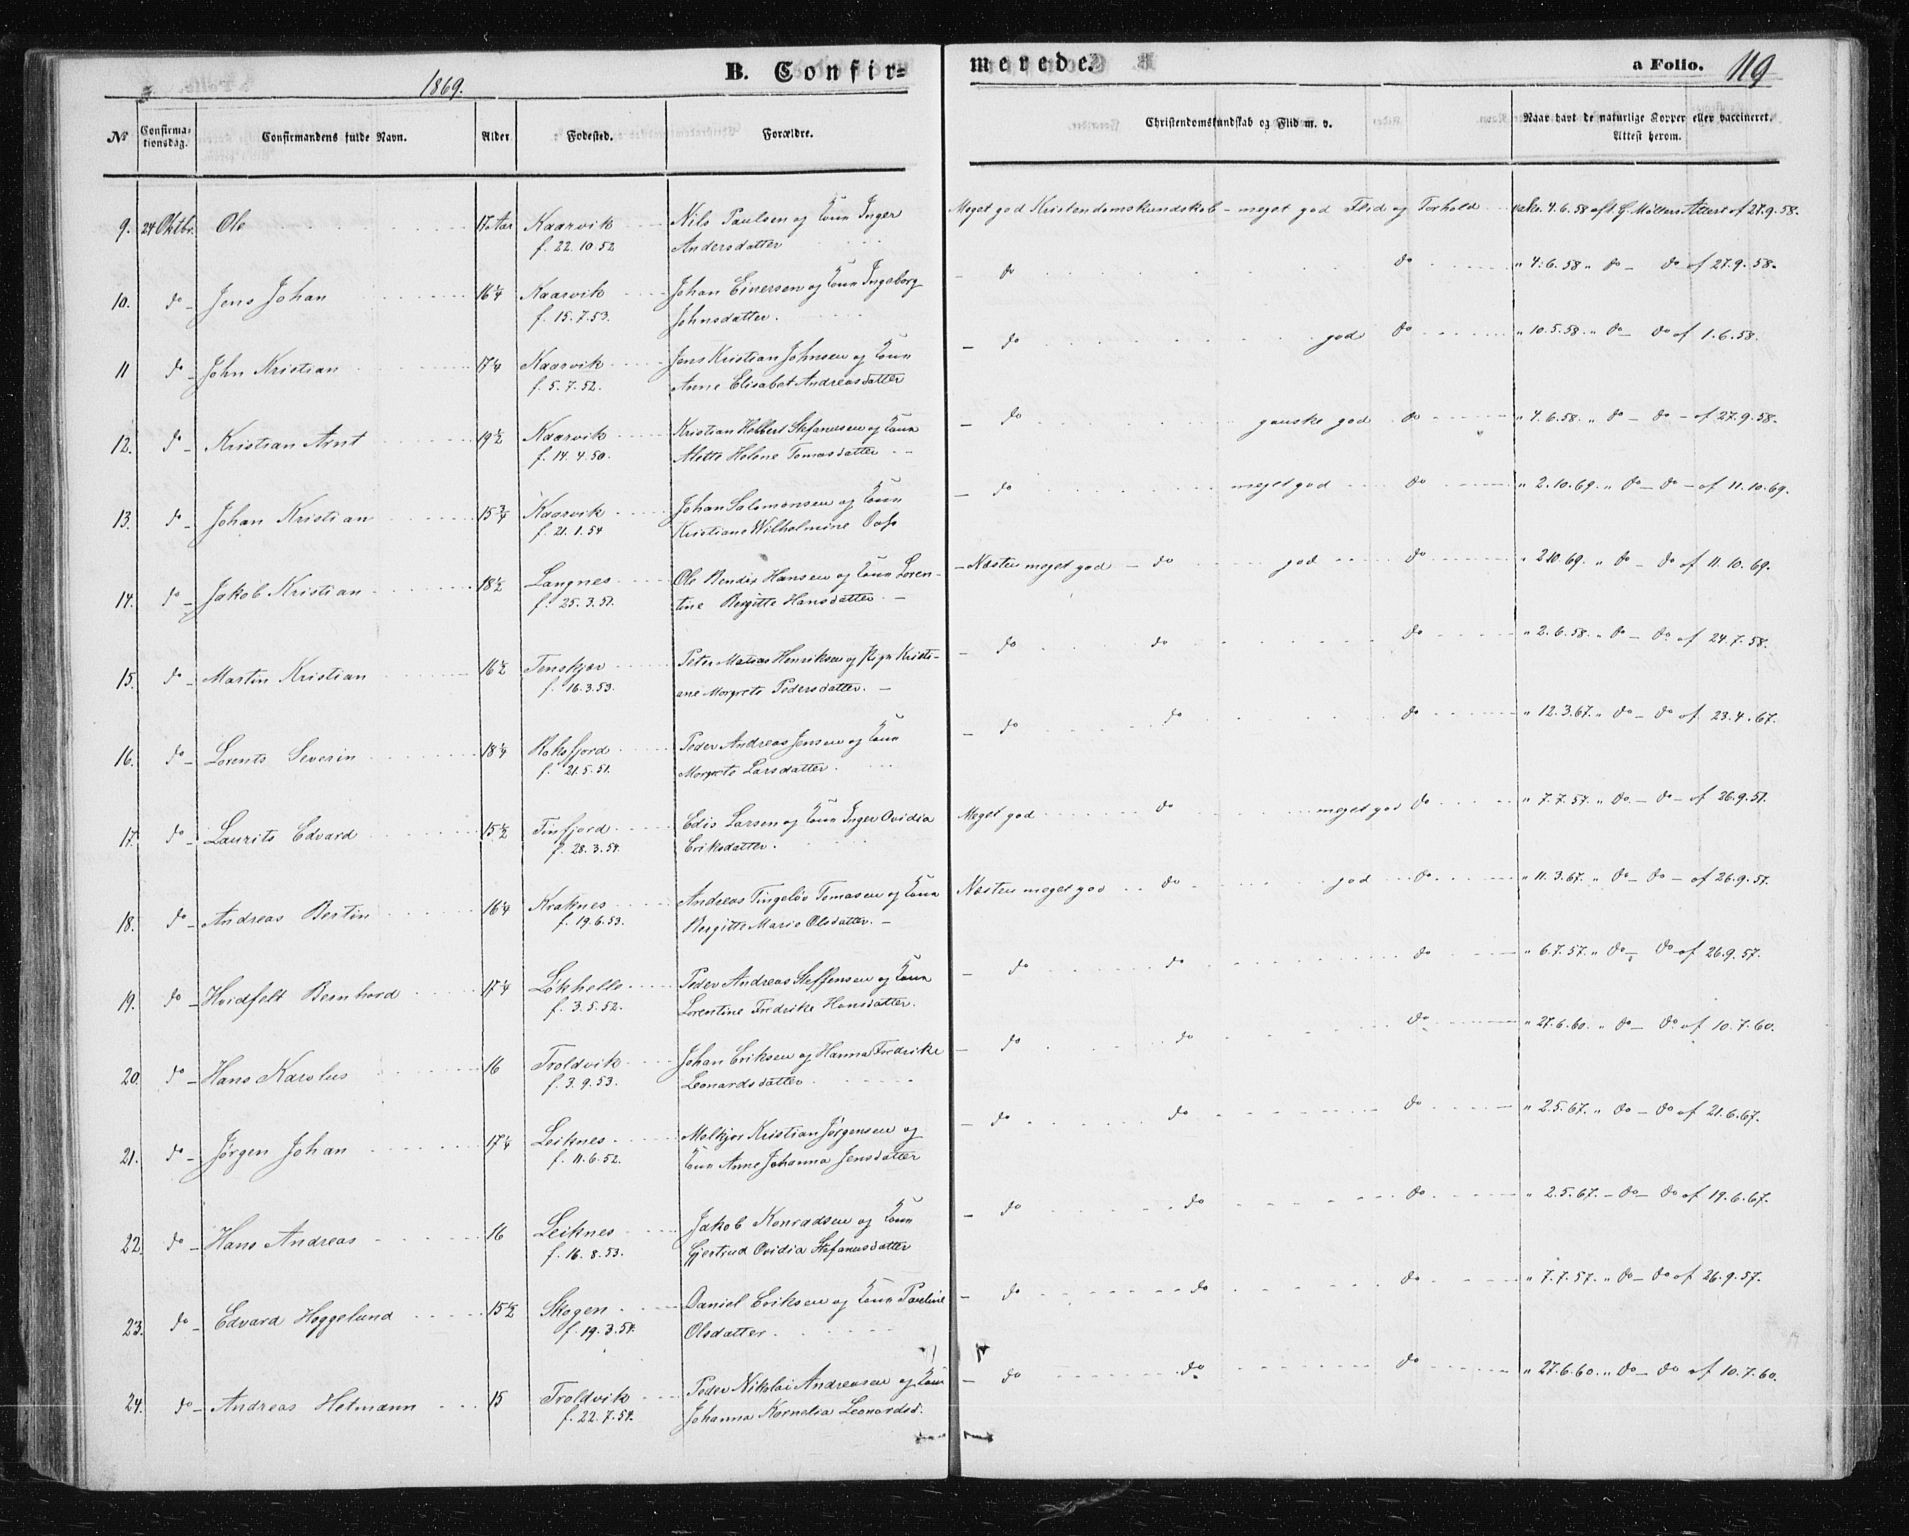 1869.
B. Confirmerede.
a Folio. 119
No
Confirmationsdag.
Confirmandens fulde Navn.
Alder
Fødested.
Forældre.
Christendomskundskab og Flid m. v.
Naar havt de naturlige Kopper eller vaccineret. Attest herom.
9. 24 Oktbr. Ole 17 Aar Kaarvik Nils Paulsen og Kona Inger Meget god Kristendomskundskab - meget god Flid og Forhold vakc. 4.6.58 af G. Møllers Attest af 27.9.58.
f. 22.10.52 Andersdatter
10. do - Jens Johan 16 1/4 Kaarvik Johan Einersen og Kona Ingeborg - do do " 4.6.58 " do - do af 27.9.58.
f. 15.7.53. Johnsdatter.
11 do - John Kristian 17 1/4 Kaarvik Jens Kristian Johnsen og Kona - do god do " 10.5.58 " do - do af 1.6.58.
f. 5.7.52. Anne Elisabet Andreasdatter
12. do - Kristian Arnt 19 1/2 Kaarvik Kristian Holbert Stefanusen og Kona - do ganske god do " 4.6.58. " do - do - af 27.9.58.
f. 14.4.50. Mette Helene Tomasdatter
13. do - Johan Kristian 15 3/4 Kaarvik Johan Salomonsen og Kona - do meget god do " 2.10.69. " do - do - af 11.10.69.
f. 21.1.54 Kristiane Wilhelmine
14. do - Jakob Kristian 18 1/2 Langnes Ole Bendix Hansen og Kona Loren- - Næsten meget god - do god do " 2.10.69. " do - do af 11.10.69.
f. 25.3.51. tine Bergitte Hansdatter -
15. do - Martin Kristian 16 1/2 Tenskjær Peter Matias Henriksen og Pige Kristi- - do do do " 2.6.58. " do - do af 24.7.58.
f. 16.3.53. ane Margrete Pedersdatter. -
16. do - Lorents Severin 18 1/4 Kaksfjord Peder Andreas Jensen og Kona - do do do " 12.3.67. " do - do af 23.4.67.
f. 21.5.51. Margrete Larsdatter.
17. do - Laurits Edvard 15 1/2 Finfjord Edis Larsen og Kona Inger Ovidia Meget god do meget god do " 7.7.57. " do - do - af 26.9.57.
f. 28.3.54. Eriksdatter.
18. do - Andreas Bertin 16 1/4 Kraknes Andreas Tingeløv Tomasen og Kona Næsten meget god do god do " 11.3.67. " do - do - af 26.9.57.
f. 19.6.53. Bergitte Marie Olsdatter. -
19. do - Hvidfelt Bernhard 17 1/4 Løkhelle Peder Andreas Steffensen og Kona - do do do " 6.7.57. " do - do - af 26.9.57.
f. 3.5.52. Lorentine Fredrike Hansdatter.
20. do - Hans Karolus 16 Troldvik Johan Eriksen og Hanna Fredrike - do do do " 27.6.60. " do - do af 10.7.60.
f. 3.9.53. Leonardsdatter
21. do - Jørgen Johan 17 1/4 Leiknes Melkjor Kristian Jørgensen og - do do do " 2.5.67. " do - do af 21.6.67.
f. 11.6.52. Kona Anne Johanna Jensdatter
22. do - Hans Andreas 16 Leiknes Jakob Konradsen og Kona - do do do " 2.5.67. - do - do af 19.6.67.
f. 16.8.53. Gjertrud Ovidia Stefanusdatter
23. do - Edvard Heggelund 15 1/2 Skogen Daniel Eriksen og Kona Pauline - do do do " 7.7.57. " do - do af 26.9.57.
f. 19.3.54. Olsdatter
24. do - Andreas Hetmann 15 Troldvik Peder Nikolai Andreasen og Kona - do do do " 27.6.60. " do - do af 10.7.60.
f. 22.7.54. Johanna Kornelia Leonardsd.